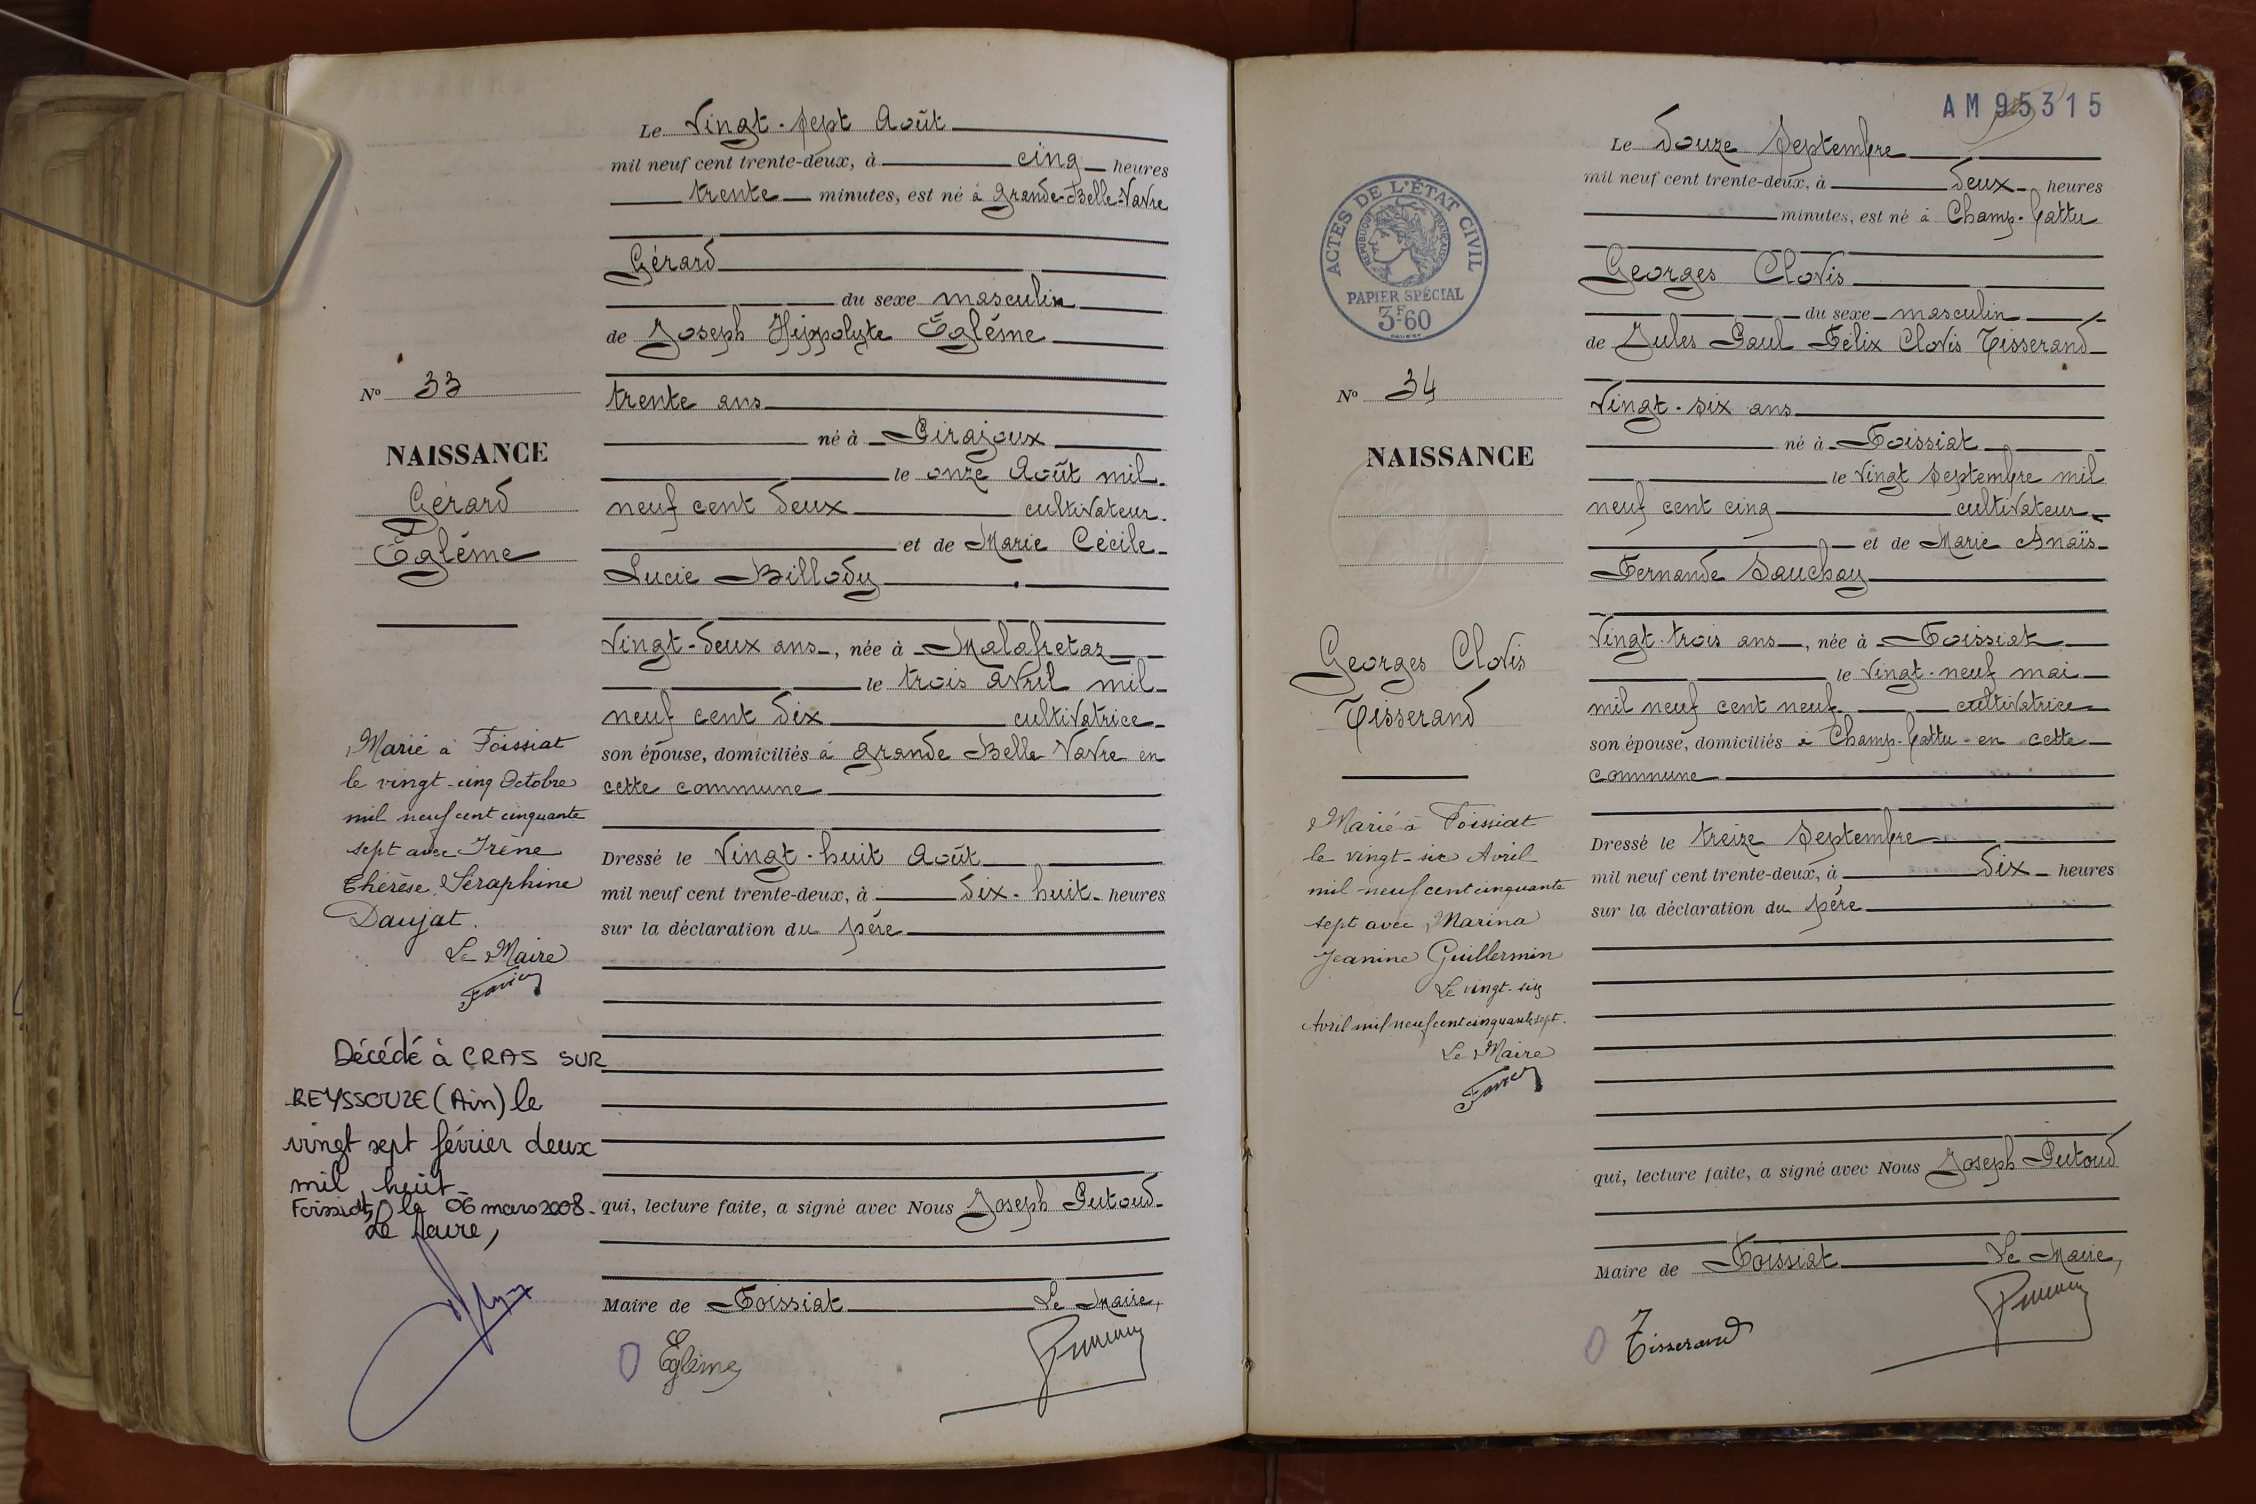 Le Vingt-sept Août
mil neuf cent trente-deux, à cinq heures
trente minutes, est né à Grande-Belle-Vavre
Gérard
du sexe masculin
de Joseph Hippolyte Eglème
Nº 33
trente ans
né à Pirajoux
NAISSANCE
le onze Août mil
Gérard
neuf cent deux cultivateur
Eglème
et de Marie Cécile
Lucie Billody
Vingt-deux ans, née à Malafretaz
le trois avril mil
neuf cent dix cultivatrice
son épouse, domiciliés à Grande Belle Vavre en
cette commune
Dressé le Vingt-huit Août
mil neuf cent trente-deux, à dix-huit heures
sur la déclaration du père
qui, lecture faite, a signé avec Nous Joseph Putoud
Maire de Foissiat Le Maire,
Eglème
Marié à Foissiat
le vingt-cinq Octobre
mil neuf cent cinquante
sept avec Irène
Thérèse Séraphine
Daujat.
Le Maire
Décédé à CRAS SUR
REYSSOUZE (Ain) le
vingt sept février deux
mil huit
Foissiat, le 06 mars 2008.
Le Maire,
AM 95315
Le douze Septembre
mil neuf cent trente-deux, à deux heures
minutes, est né à Champ-Cattu
ACTES DE L'ÉTAT CIVIL
RÉPUBLIQUE FRANÇAISE
PAPIER SPÉCIAL
3F60
Georges Clovis
du sexe masculin
de Jules Paul Félix Clovis Tisserand
Nº 34
Vingt-six ans
né à Foissiat
NAISSANCE
le vingt septembre mil
neuf cent cinq cultivateur
et de Marie Anaïs
Fernande Sauchay
Georges Clovis
Tisserand
Vingt-trois ans, née à Foissiat
le vingt-neuf mai
mil neuf cent neuf cultivatrice
son épouse, domiciliés à Champ-Cattu en cette
commune
Dressé le treize Septembre
mil neuf cent trente-deux, à dix heures
sur la déclaration du père
qui, lecture faite, a signé avec Nous Joseph Putoud
Maire de Foissiat Le Maire,
Tisserand
Marié à Foissiat
le vingt-six Avril
mil neuf cent cinquante
sept avec Marina
Jeanine Guillermin
Le vingt-six
Avril mil neuf cent cinquante sept.
Le Maire